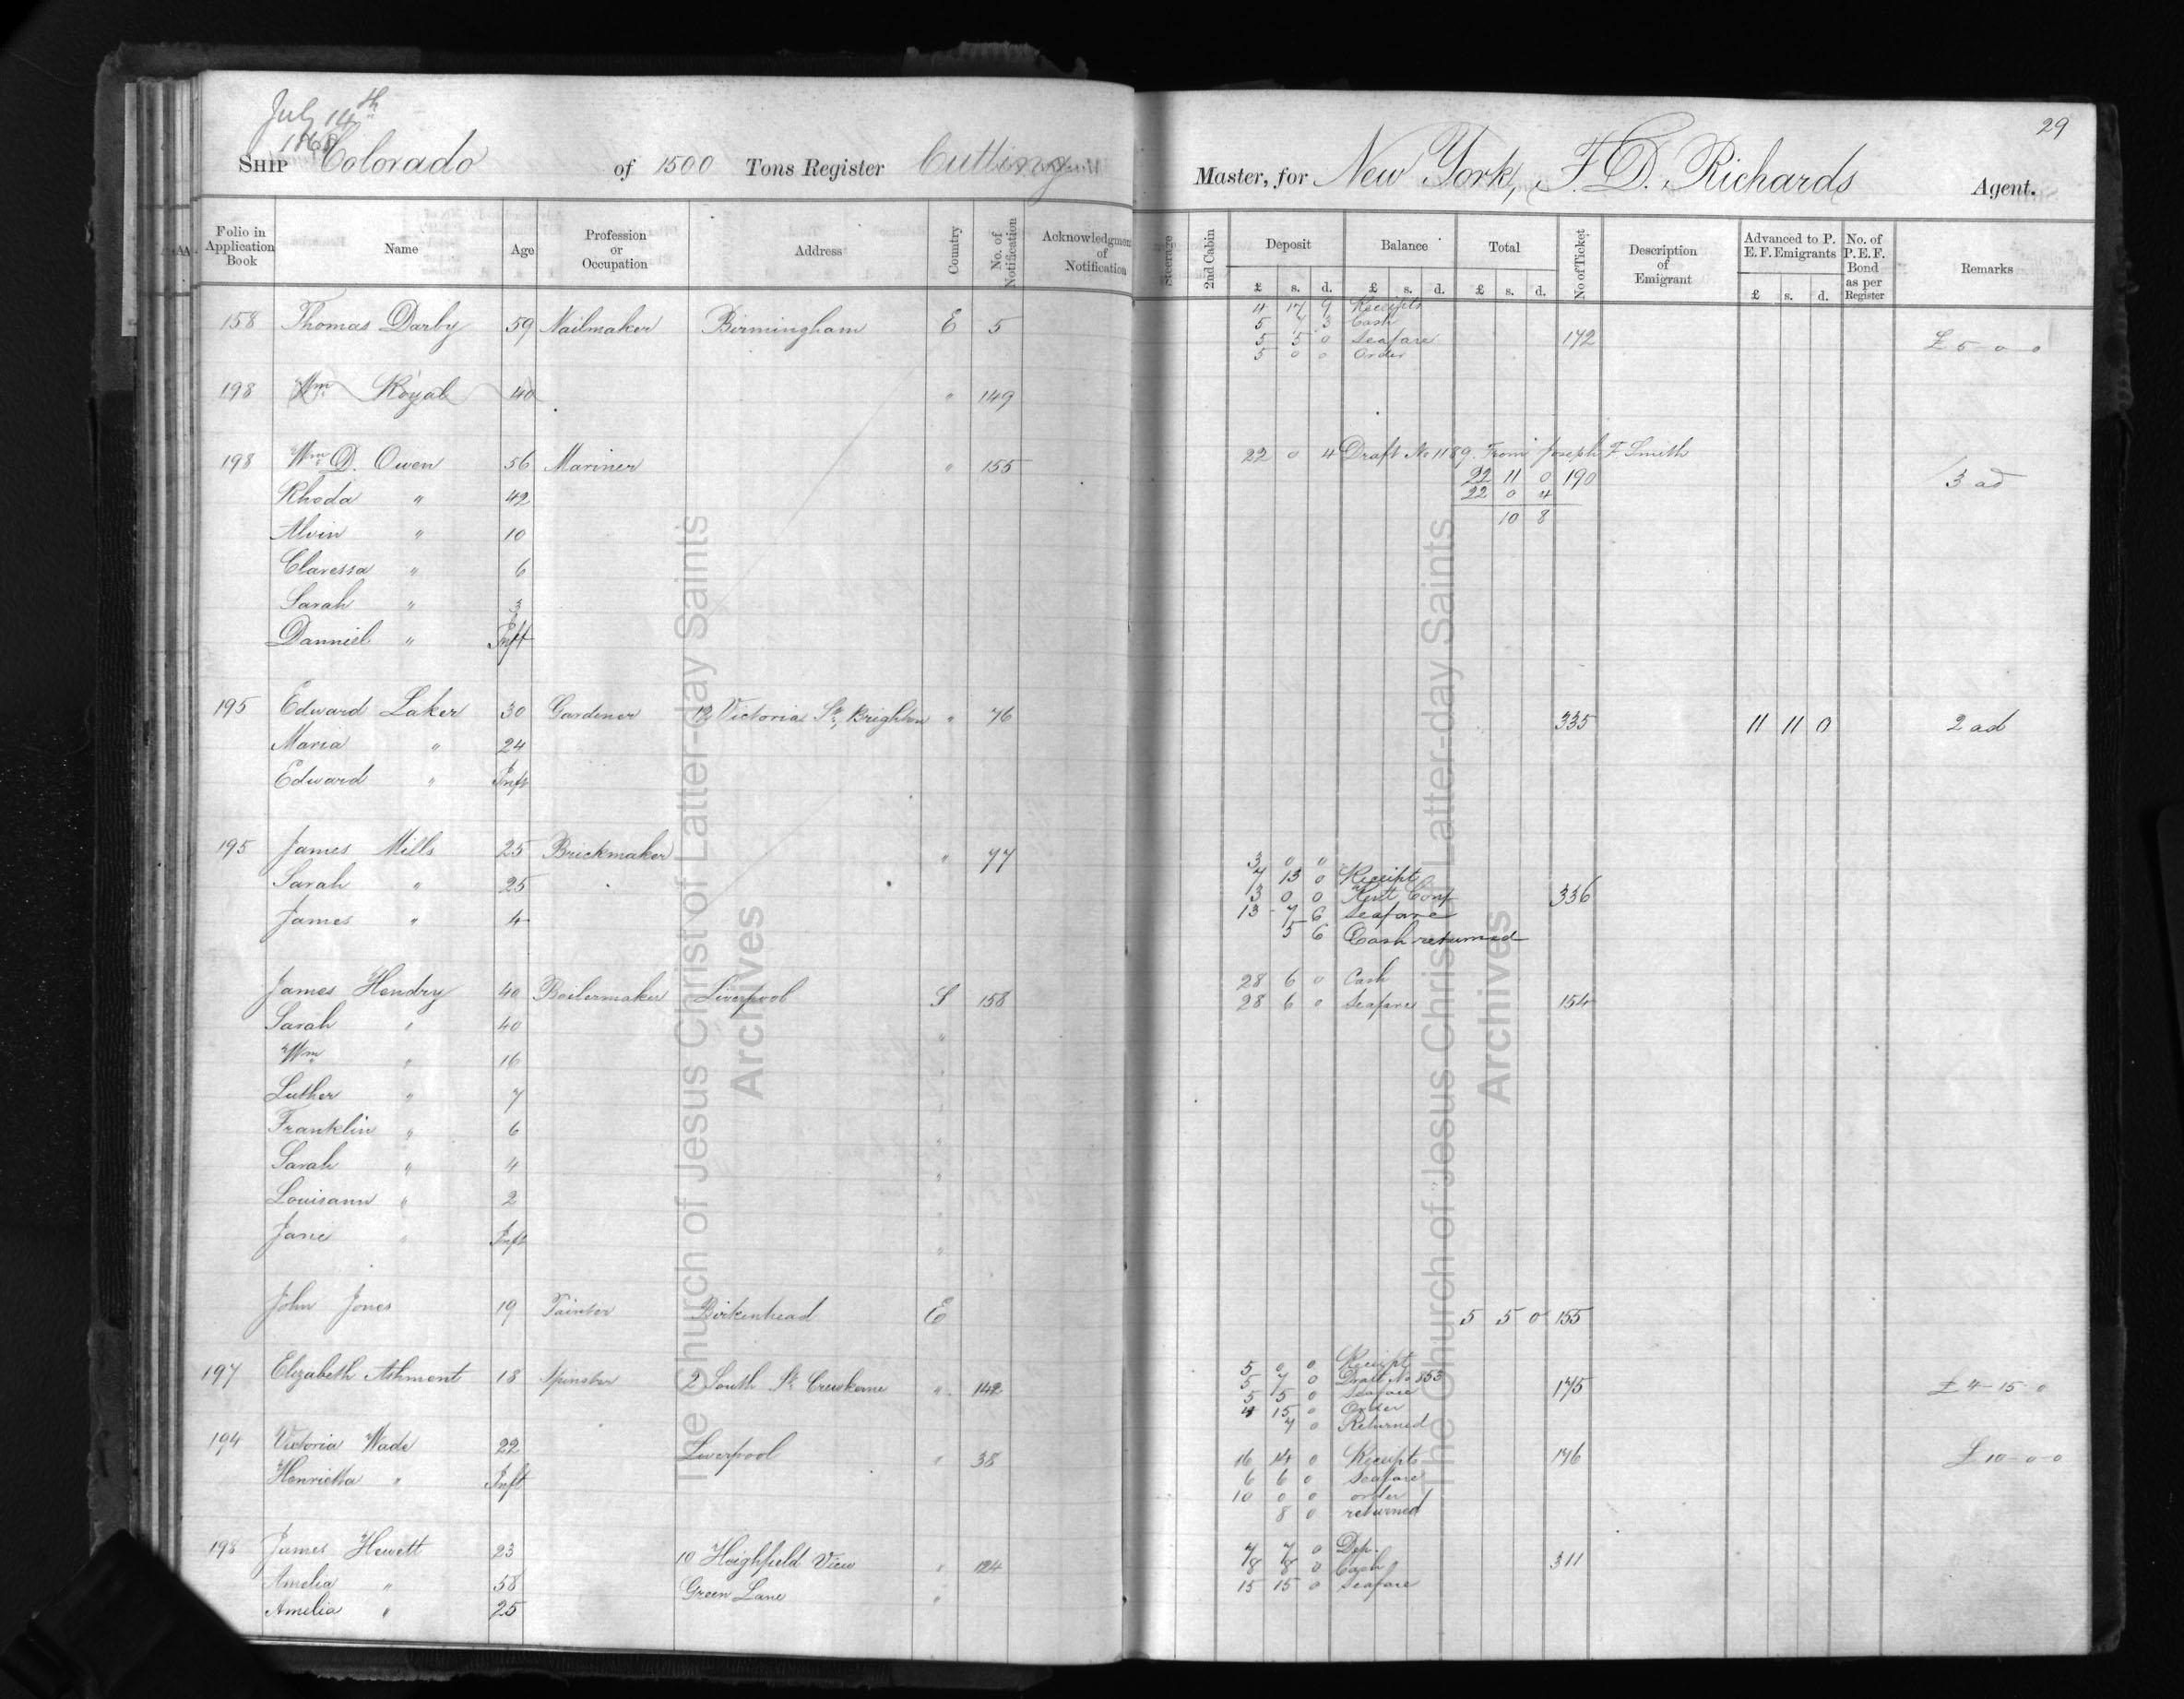 July 14th
1868
29
SHIP Colorado of 1500 Tons Register Cutting Master, for New York, F. D. Richards Agent.
Folio in Application Book Name Age Profession or Occupation Address Country No. of Notification Acknowledgment of Notification Steerage 2nd Cabin Deposit Balance Total No of Ticket Description of Emigrant Advanced to P. E. F. Emigrants No. of P. E. F. Bond as per Register Remarks
£ s. d. £ s. d. £ s. d. £ s. d.
4 17 9 Receipts
158 Thomas Darby 59 Nailmaker Birmingham E 5 5 7 3 Cash
5 5 0 Seafare 172 £ 5 - 0 0
5 0 0 Order
198 Wm Royal 40 " 149
198 Wm D. Owen 56 Mariner " 155 22 0 4 Draft No 1189. From Joseph F Smith
22 11 0 190 3 ad
Rhoda " 42 22 0 4
10 8
Alvin " 10
Claressa " 6
Sarah " 3
Danniel " Inft
195 Edward Laker 30 Gardener 12 Victoria St, Brighton " 76 335 11 11 0 2 ad
Maria " 24
Edward " Inft
195 James Mills 25 Brickmaker " 77 3 0 0
7 13 0 Receipt
Sarah " 25 3 0 0 Kent Conf 336
James " 4 13 7 6 Seafare
5 6 Cash returned
28 6 0 Cash
James Hendry 40 Boilermaker Liverpool S 158 28 6 0 Seafare 154
Sarah " 40 "
Wm " 16 "
Luther " 7 "
Franklin " 6 "
Sarah " 4 "
Louisann " 2 "
Jane " Inft "
John Jones 19 Painter Birkenhead E 5 5 0 155
5 0 0 Receipt
197 Elizabeth Ashment 18 Spinster 2 South St Crewkerne " 142 5 7 0 Draft No 853
5 5 0 Seafare 175 £ 4 - 15 - 0
4 15 0 Order
7 0 Returned
194 Victoria Wade 22 Liverpool " 38 16 14 0 Receipts 176 £ 10 - 0 - 0
Henrietta " Inft 6 6 0 Seafare
10 0 0 order
8 0 returned
198 James Hewett 23 10 Heighfield View " 124 7 7 0 Dep.
8 8 0 Cash 311
Amelia " 58 Green Lane " 15 15 0 Seafare
Amelia " 25
The Church of Jesus Christ of Latter-day Saints
Archives
The Church of Jesus Christ of Latter-day Saints
Archives